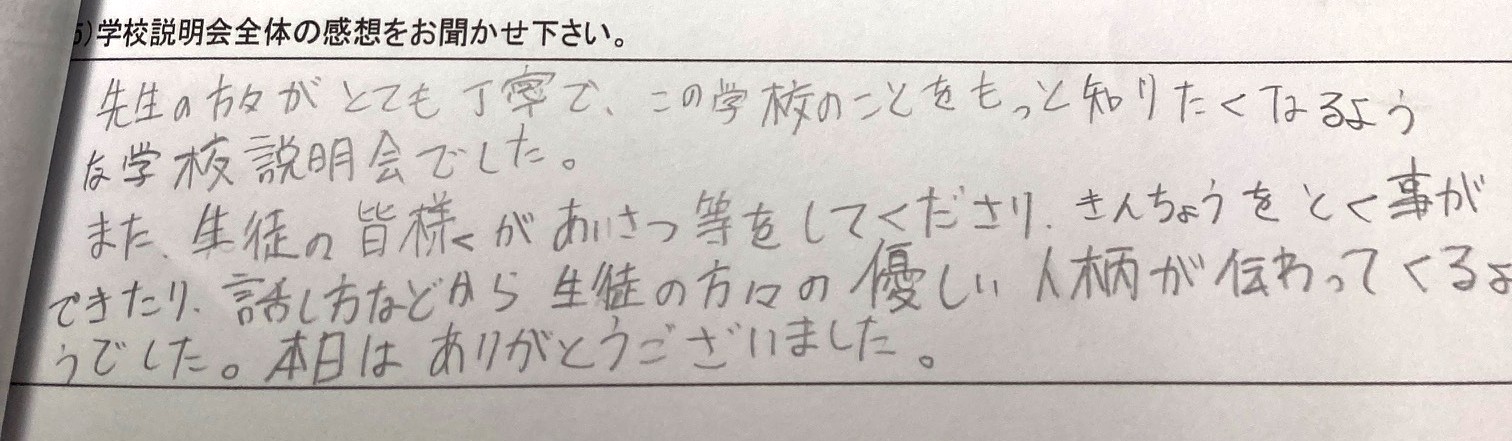 5)学校説明会全体の感想をお聞かせ下さい。
先生の方々がとても丁寧で、この学校のことをもっと知りたくなるよう
な学校説明会でした。
また、生徒の皆様々があいさつ等をしてくださり、きんちょうをとく事が
できたり、話し方などから生徒の方々の優しい人柄が伝わってくるよ
うでした。本日はありがとうございました。